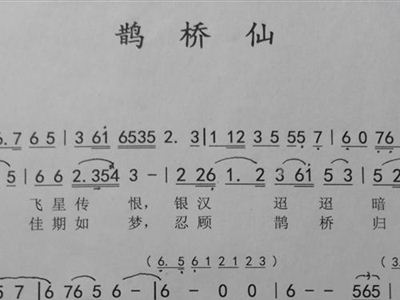 鹊 桥 仙
6.7 6 5 | 3 61 6535 2. 3 | 1 12 3 5 55 7 | 6 0 76
5 | 6 6 2.354 3 - | 2 26 1. 2 3 61 5 3 | 5
飞 星 传 恨, 银 汉 迢 迢 暗
佳 期 如 梦, 忍 顾 鹊 桥 归
( 6. 5 6 1 2 1 2 3 )
7 6 5 6 - | 6 - - 0 | 6 - - 565 |